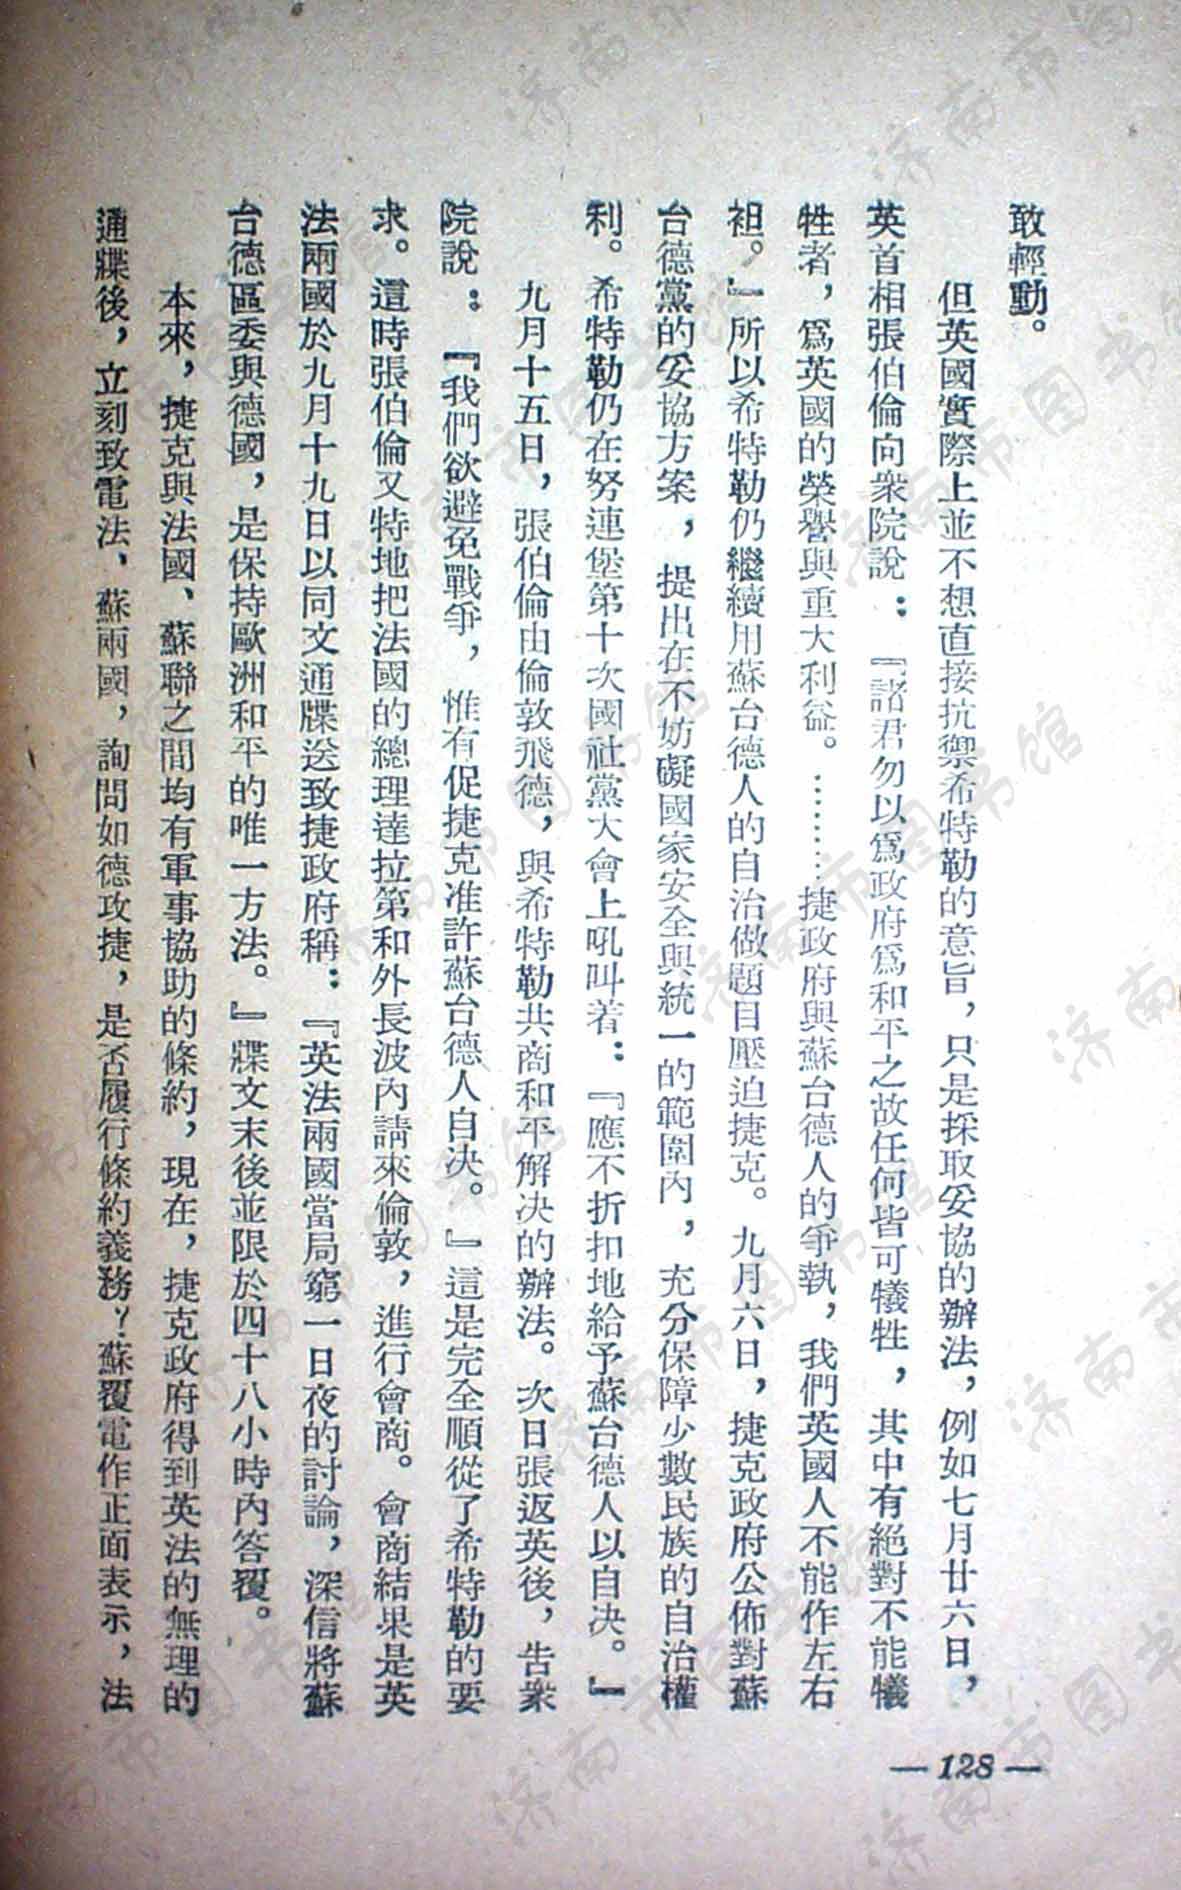 敢輕動。
但英國實際上並不想直接抗禦希特勒的意旨，只是採取妥協的辦法，例如七月廿六日，
英首相張伯倫向衆院說：『諸君勿以爲政府爲和平之故任何皆可犧牲，其中有絕對不能犧
牲者，爲英國的榮譽與重大利益。………捷政府與蘇台德人的爭執，我們英國人不能作左右
袒。』所以希特勒仍繼續用蘇台德人的自治做題目壓迫捷克。九月六日，捷克政府公佈對蘇
台德黨的妥協方案，提出在不妨礙國家安全與統一的範圍內，充分保障少數民族的自治權
利。希特勒仍在努連堡第十次國社黨大會上吼叫着：『應不折扣地給予蘇台德人以自決。』
九月十五日，張伯倫由倫敦飛德，與希特勒共商和平解決的辦法。次日張返英後，告衆
院說：『我們欲避免戰爭，惟有促捷克准許蘇台德人自決。』這是完全順從了希特勒的要
求。這時張伯倫又特地把法國的總理達拉第和外長波內請來倫敦，進行會商。會商結果是英
法兩國於九月十九日以同文通牒送致捷政府稱：『英法兩國當局窮一日夜的討論，深信將蘇
台德區委與德國，是保持歐洲和平的唯一方法。』牒文末後並限於四十八小時內答覆。
本來，捷克與法國、蘇聯之間均有軍事協助的條約，現在，捷克政府得到英法的無理的
通牒後，立刻致電法、蘇兩國，詢問如德攻捷，是否履行條約義務？蘇覆電作正面表示，法
— 128 —
济南市图书馆